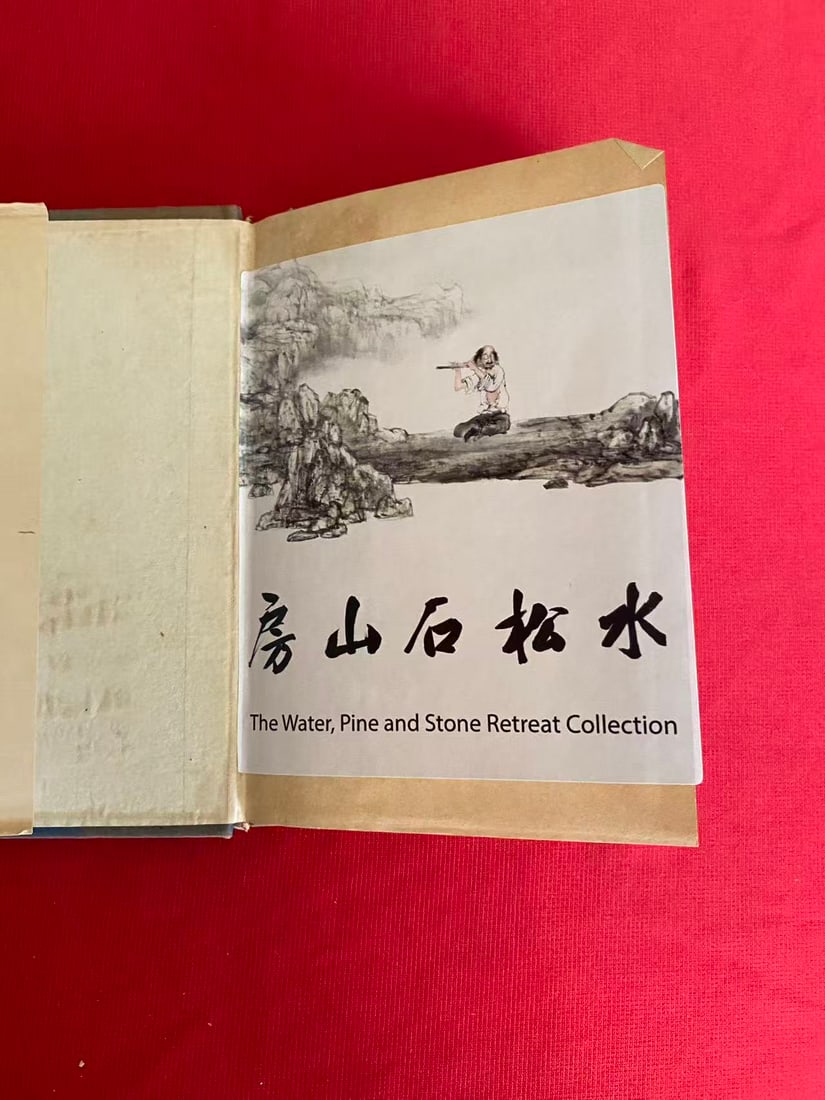 水松石山房
The Water, Pine and Stone Retreat Collection